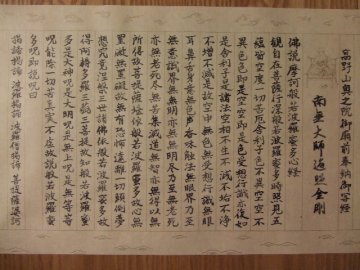 高野山奥之院御廟前奉納御写経
南無大師遍照金剛
佛説摩訶般若波羅蜜多心経
観自在菩薩行深般若波羅蜜多時照見五
蘊皆空度一切苦厄舎利子色不異空空不
異色色即是空空即是色受想行識亦復如
是舎利子是諸法空相不生不滅不垢不浄
不増不減是故空中無色無受想行識無眼
耳鼻舌身意無色声香味触法無眼界乃至
無意識界無無明亦無無明盡乃至無老死
亦無老死盡無苦集滅道無智亦無得以無
所得故菩提薩埵依般若波羅蜜多故心無
罣礙無罣礙故無有恐怖遠離一切顛倒夢
想究竟涅槃三世諸佛依般若波羅蜜多故
得阿耨多羅三藐三菩提故知般若波羅蜜
多是大神呪是大明呪是無上呪是無等等
呪能除一切苦真実不虚故説般若波羅蜜
多呪即説呪曰
揭諦揭諦 波羅揭諦 波羅僧揭諦 菩提薩婆訶